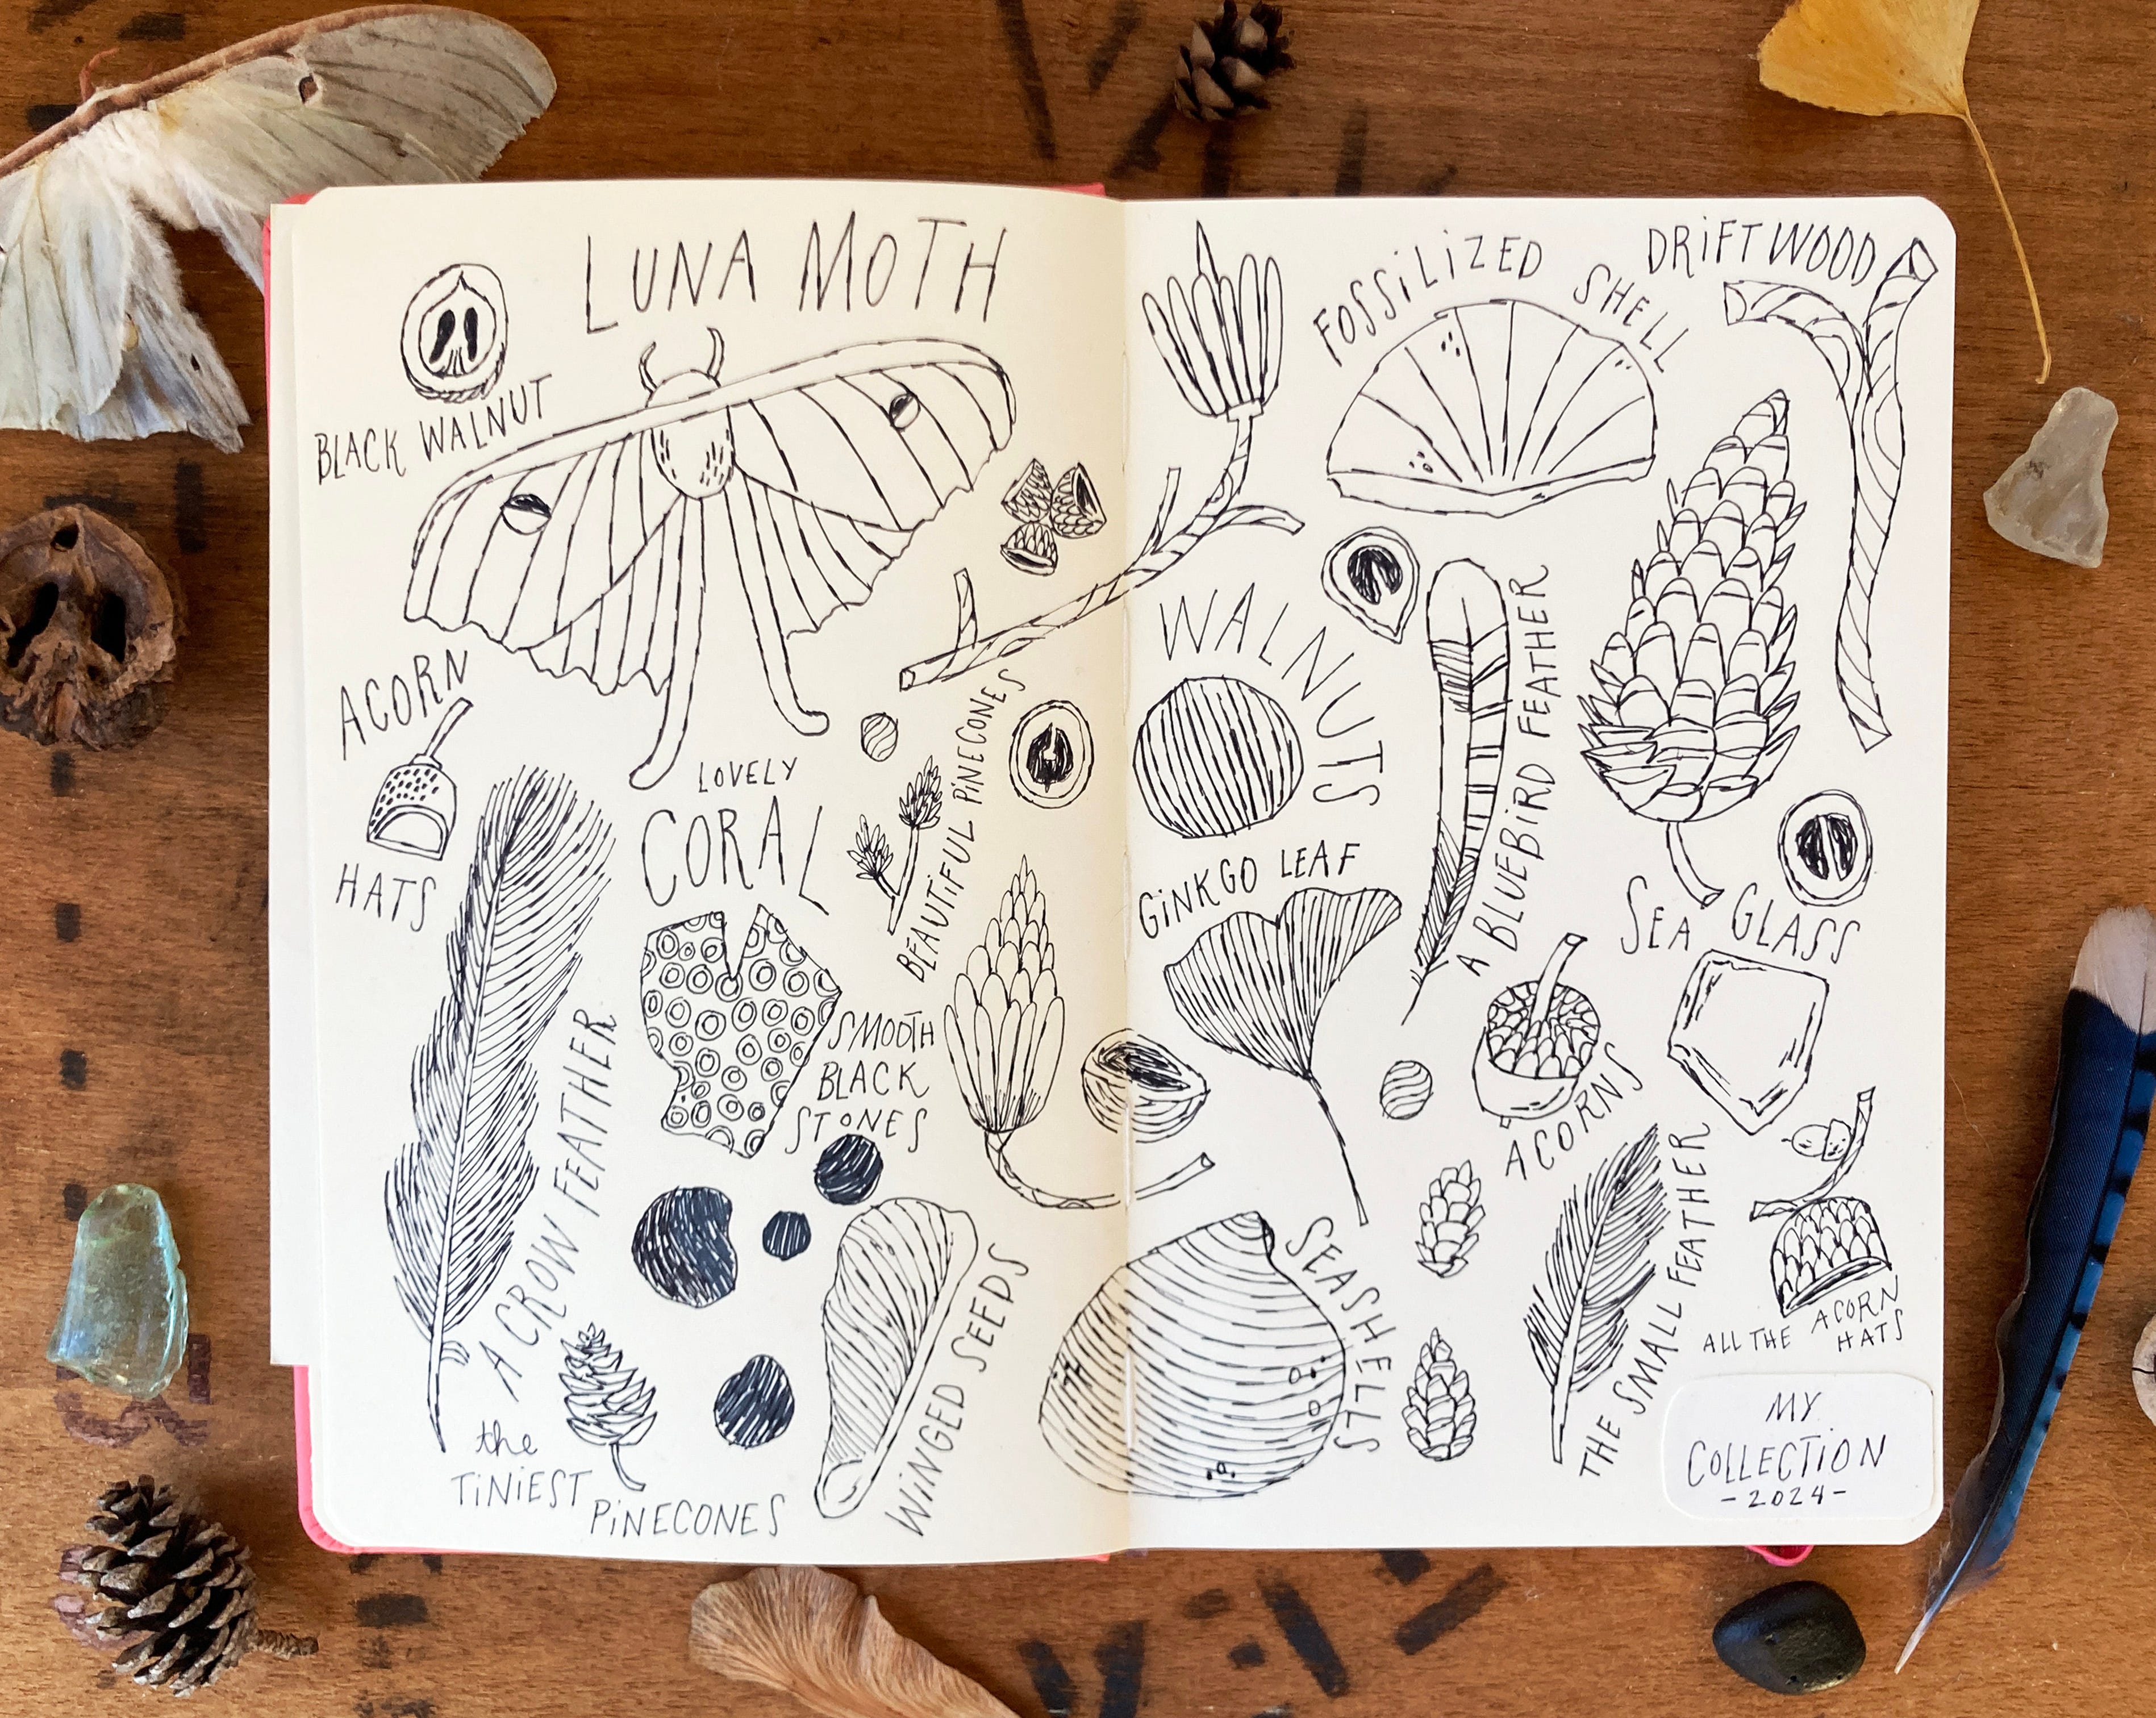 LUNA MOTH
BLACK WALNUT
ACORN
HATS
LOVELY
CORAL
BEAUTIFUL PINECONES
A CROW FEATHER
SMOOTH
BLACK
STONES
WINGED SEEDS
the
TINIEST
PINECONES
FOSSILIZED SHELL
DRIFTWOOD
WALNUTS
A BLUEBIRD FEATHER
GINKGO LEAF
SEA GLASS
ACORNS
SEASHELLS
THE SMALL FEATHER
ALL THE ACORN
HATS
MY
COLLECTION
-2024-